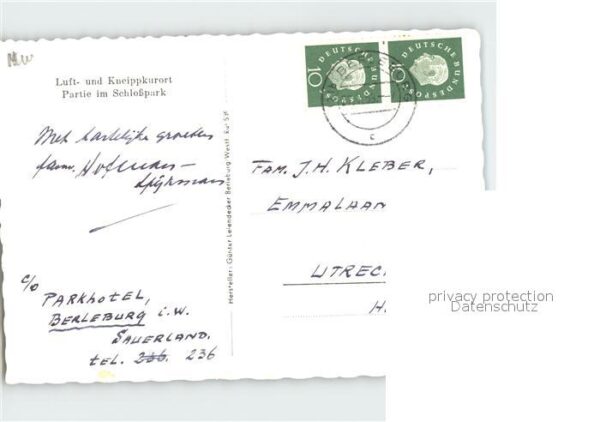 Luft- und Kneippkurort
Partie im Schloßpark
Met hartelijke groeten
fam. Hofman-
c/o PARKHOTEL,
BERLEBURG i.W.
SAUERLAND.
tel. 266. 236
Hersteller: Günter Leiendecker Berleburg Westf.
DEUTSCHE BUNDESPOST
10
DEUTSCHE BUNDESPOST
10
c
FAM. J.H. KLEBER,
EMMALAAN
UTREC
H.
privacy protection
Datenschutz